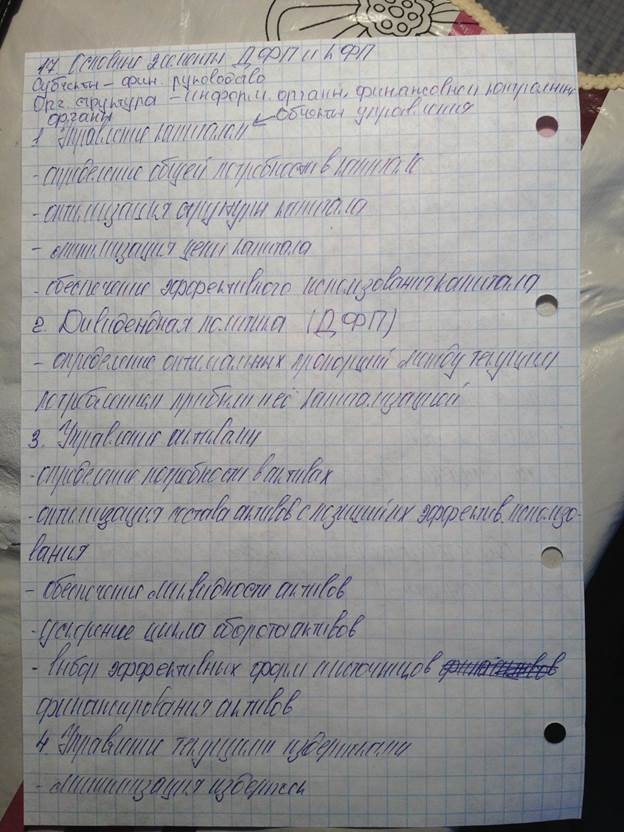 17. Основные элементы ДФП и КФП
Субъекты – фин. руководство
Орг. структура – информ. органы, финансовой контролинг
органы
1. Управление капиталом ← Объекты управления
- определение общей потребности в капитале
- оптимизация структуры капитала
- минимизация цены капитала
- обеспечение эффективного использования капитала
2. Дивидендная политика (ДФП)
- определение оптимальных пропорций между текущим
потреблением прибыли и её капитализацией
3. Управление активами
- определение потребности в активах
- оптимизация состава активов с позиций их эффектив. использо-
вания
- обеспечение ликвидности активов
- ускорение цикла оборота активов
- выбор эффективных форм и источников
финансирования активов
4. Управление текущими издержками
- минимизация издержек